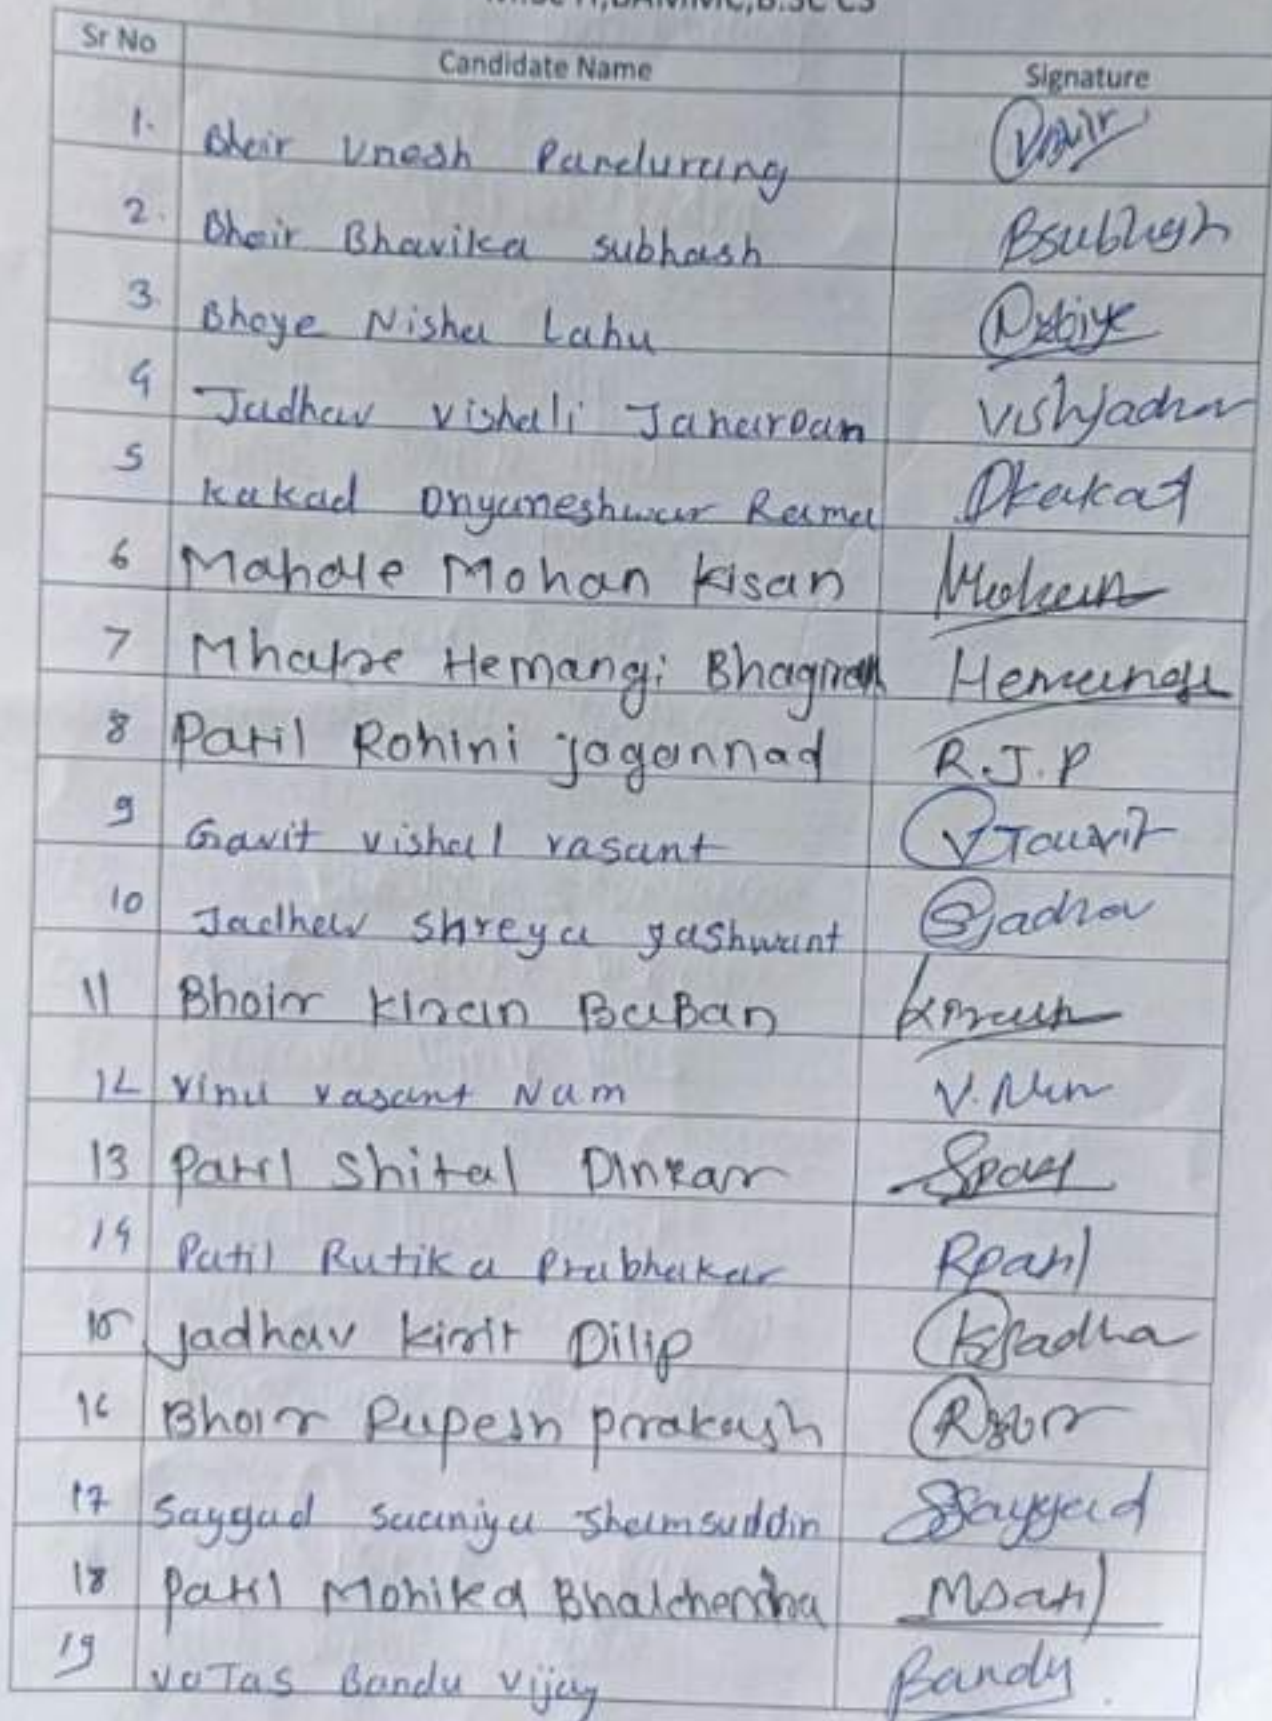 Sr No Candidate Name Signature
1. Bhoir Unesh Pandurang
2. Bhoir Bhavika subhash Bsubhash
3. Bhoye Nisha Lahu
4 Jadhav vishali Janardan vishjadhav
5 kakad Dnyaneshwar Rama Dkakad
6 Mahale Mohan kisan Mohan
7 Mhatre Hemangi Bhagwan Hemangi
8 Patil Rohini jagannad R.J.P
9 Gavit vishal vasant
10 Jadhav shreya yashwant Sjadhav
11 Bhoir kiran BaBan kiran
12 vinu vasant Nam V.
13 Patil Shital Dinkar
14 Patil Rutika Prabhakar Rpatil
15 Jadhav kirit Dilip
16 Bhoir Rupesh prakash
17 Sayyad Saaniya Shamsuddin SSayyad
18 Patil Monika Bhalchandra
19 voTas Bandu vijay Bandu